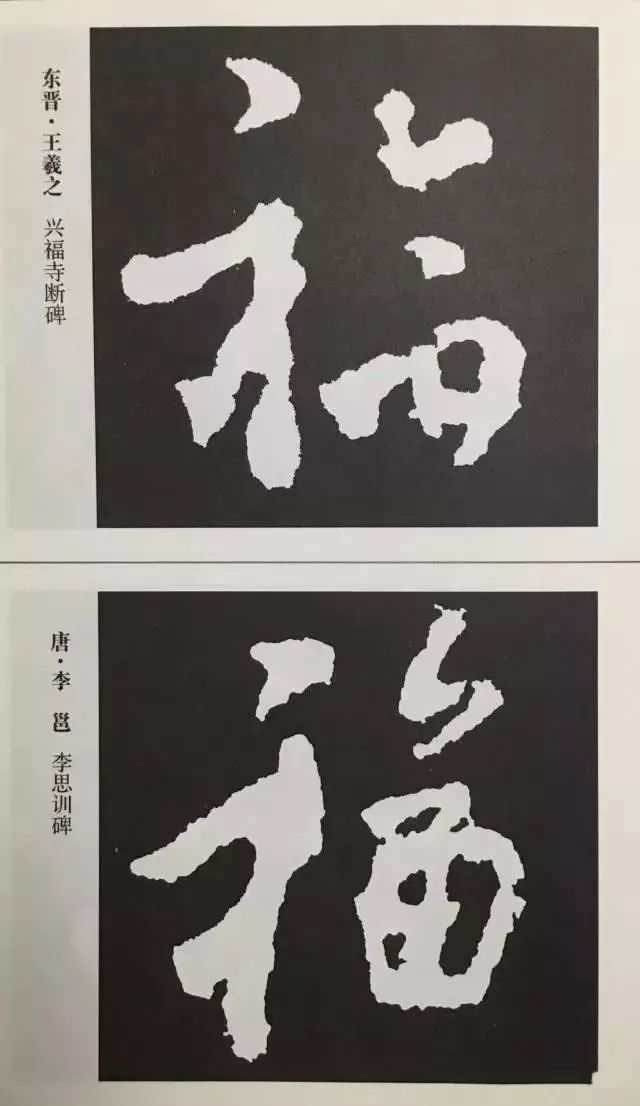 东晋·王羲之 兴福寺断碑
福
唐·李邕 李思训碑
福